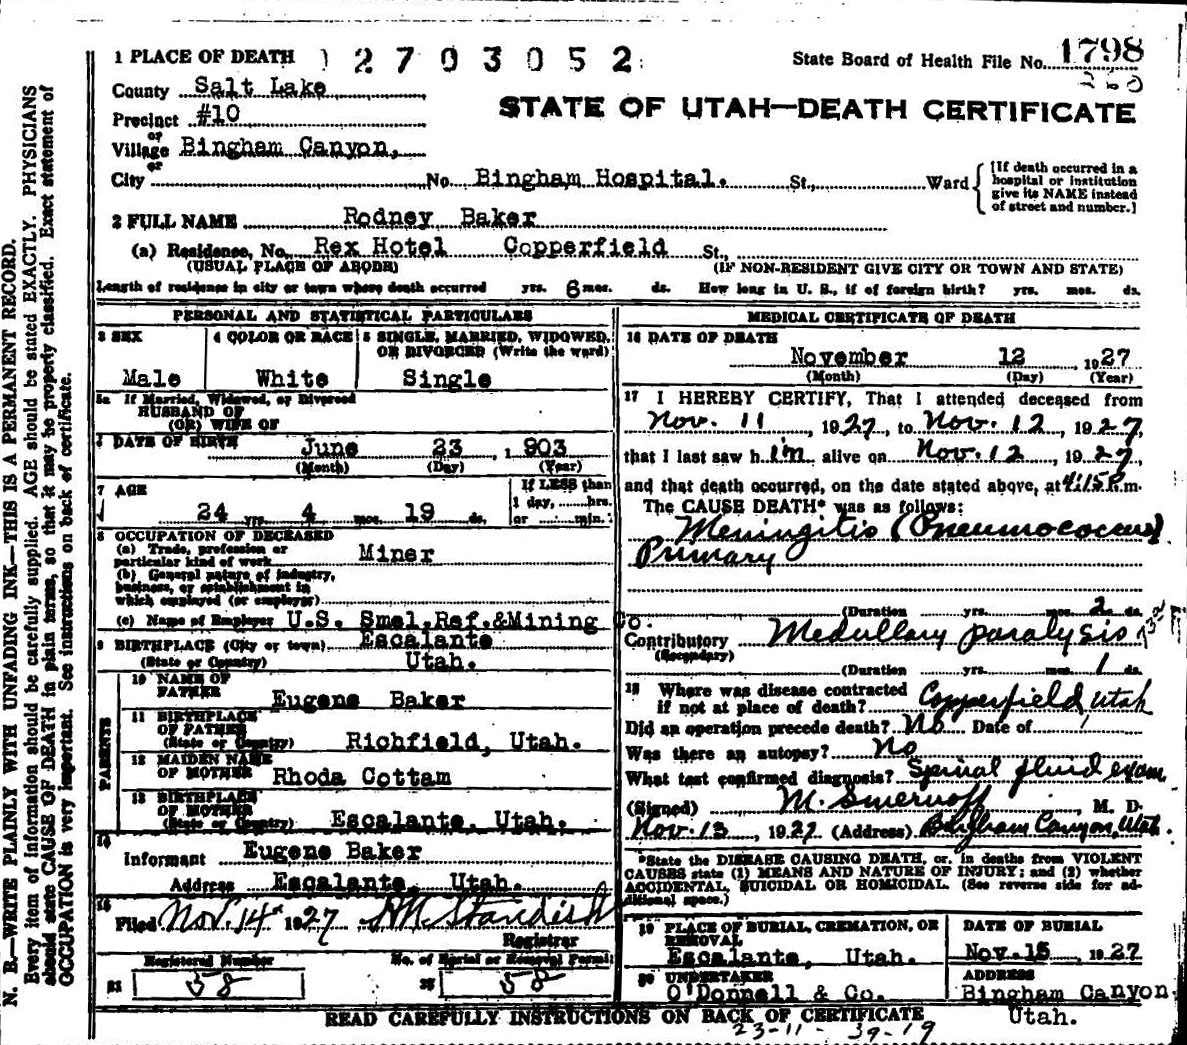 1 PLACE OF DEATH 12703052
State Board of Health File No. 1798
260
County Salt Lake
STATE OF UTAH—DEATH CERTIFICATE
Precinct #10
or
Village Bingham Canyon,
or
City No. Bingham Hospital. St., Ward
[If death occurred in a hospital or institution give its NAME instead of street and number.]
2 FULL NAME Rodney Baker
(a) Residence, No. Rex Hotel Copperfield St.,
(USUAL PLACE OF ABODE) (IF NON-RESIDENT GIVE CITY OR TOWN AND STATE)
Length of residence in city or town where death occurred yrs. 6 mos. ds. How long in U. S., if of foreign birth? yrs. mos. ds.
PERSONAL AND STATISTICAL PARTICULARS
3 SEX
Male
4 COLOR OR RACE
White
5 SINGLE, MARRIED, WIDOWED,
OR DIVORCED (Write the word)
Single
5a If Married, Widowed, or Divorced
HUSBAND OF
(OR) WIFE OF
6 DATE OF BIRTH June 23, 1903
(Month) (Day) (Year)
7 AGE
24 yrs. 4 mos. 19 ds.
If LESS than
1 day, hrs.
or min.
8 OCCUPATION OF DECEASED
(a) Trade, profession or
particular kind of work Miner
(b) General nature of industry,
business, or establishment in
which employed (or employer)
(c) Name of Employer U.S. Smel.Ref.&Mining Co.
9 BIRTHPLACE (City or town) Escalante
(State or Country) Utah.
PARENTS
10 NAME OF
FATHER Eugene Baker
11 BIRTHPLACE
OF FATHER
(State or Country) Richfield, Utah.
12 MAIDEN NAME
OF MOTHER Rhoda Cottam
13 BIRTHPLACE
OF MOTHER
(State or Country) Escalante, Utah.
14
Informant Eugene Baker
Address Escalante, Utah.
15
Filed Nov. 14 1927 Standish
Registrar
Registered Number
21 58
No. of Burial or Removal Permit
22 58
MEDICAL CERTIFICATE OF DEATH
16 DATE OF DEATH
November 12, 1927
(Month) (Day) (Year)
17 I HEREBY CERTIFY, That I attended deceased from
Nov. 11, 1927, to Nov. 12, 1927,
that I last saw him alive on Nov. 12, 1927,
and that death occurred, on the date stated above, at 4:15 P.m.
The CAUSE DEATH* was as follows:
Meningitis (Pneumococcus)
Primary
(Duration yrs. mos. 2 ds.
Contributory Medullary paralysis
(Secondary)
(Duration yrs. mos. 1 ds.
18 Where was disease contracted
if not at place of death? Copperfield, Utah
Did an operation precede death? No Date of
Was there an autopsy? No
What test confirmed diagnosis? Spinal fluid exam
(Signed) M. , M. D.
Nov. 13, 1927 (Address) Bingham Canyon, Utah.
*State the DISEASE CAUSING DEATH, or, in deaths from VIOLENT
CAUSES state (1) MEANS AND NATURE OF INJURY; and (2) whether
ACCIDENTAL, SUICIDAL OR HOMICIDAL. (See reverse side for ad-
ditional space.)
19 PLACE OF BURIAL, CREMATION, OR
REMOVAL
Escalante, Utah.
DATE OF BURIAL
Nov. 15, 1927
20 UNDERTAKER
O'Donnell & Co.
ADDRESS
Bingham Canyon
Utah.
READ CAREFULLY INSTRUCTIONS ON BACK OF CERTIFICATE
23-11- 39-19
N. B.—WRITE PLAINLY WITH UNFADING INK—THIS IS A PERMANENT RECORD.
Every item of information should be carefully supplied. AGE should be stated EXACTLY. PHYSICIANS
should state CAUSE OF DEATH in plain terms, so that it may be properly classified. Exact statement of
OCCUPATION is very important. See instructions on back of certificate.